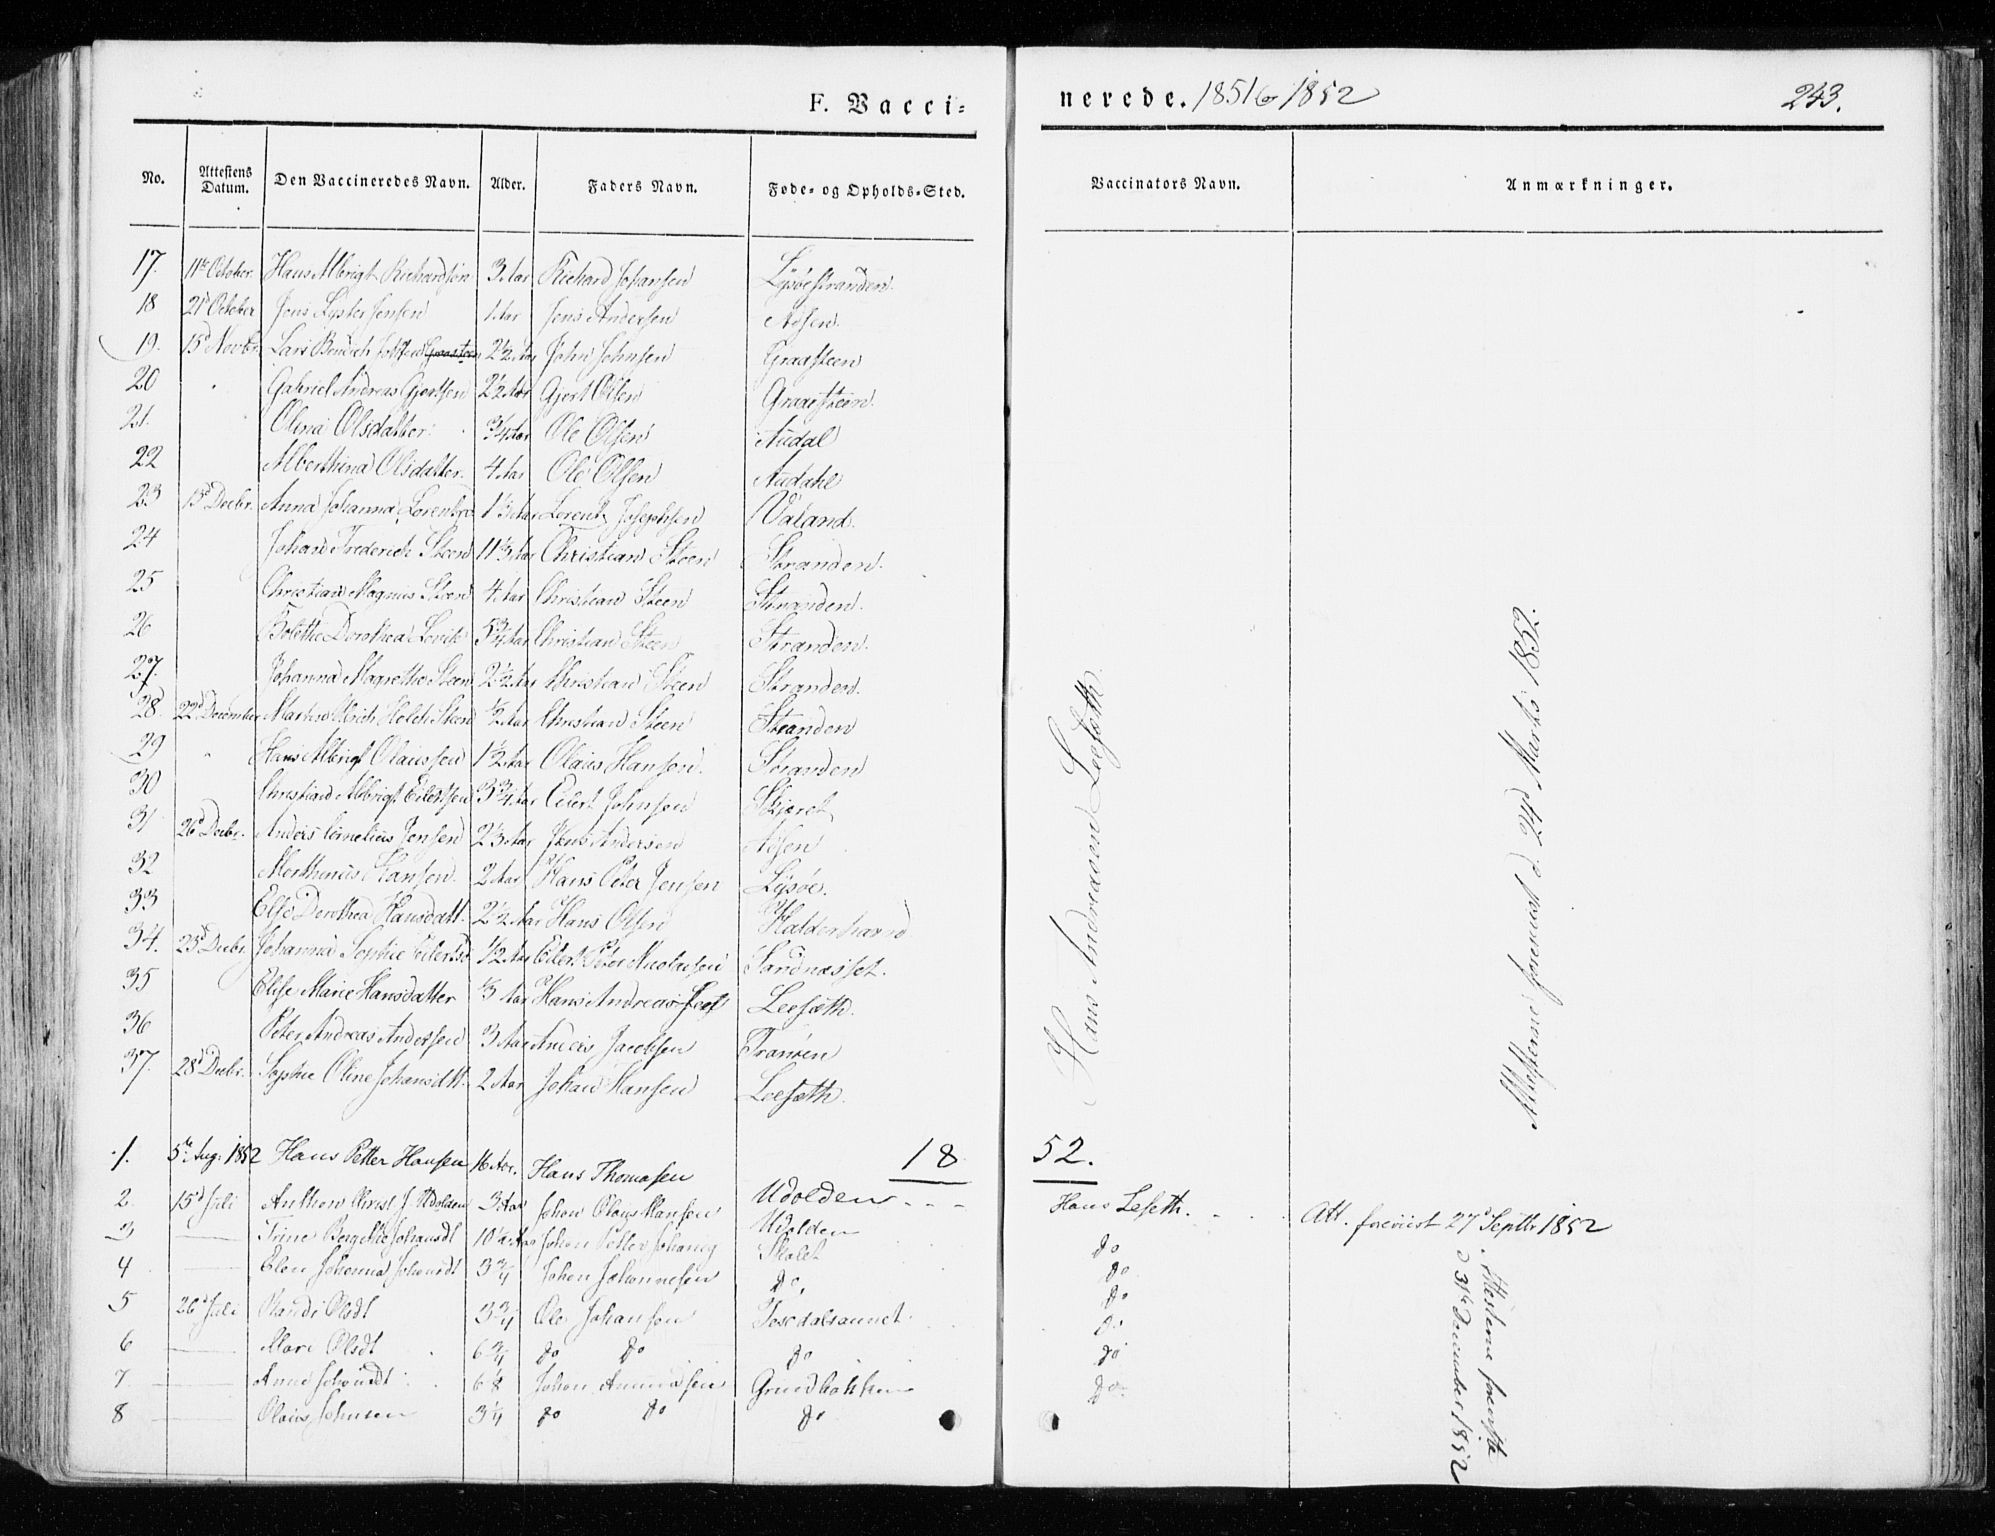 F. Vacci=
nerede. 1851 og 1852
243.
No. Attestens Datum. Den Vaccineredes Navn. Alder. Faders Navn. Føde- og Opholds-Sted. Vaccinators Navn. Anmærkninger.
17. 11te October. Hans Albrigt Richardsen 3 Aar Richard Johansen Lysøestranden.
18 21d October Jens Lyster Jensen 1 Aar Jens Andersen Aåsen.
19. 15d Novbr. Lars Bendich Johnsen 2 1/2 Aar John Johnsen Graasteen
20 Gabriel Andreas Gjertsen 2 1/2 Aar Gjert Olsen Graasteen.
21. Olina Olsdatter. 3/4 Aar Ole Olsen Audal
22 Alberthina Olsdatter. 4 Aar Ole Olsen Audahl
23 15d Decbr. Anna Johanna 1 1/3 Aar Lorentz Josephsen Valand.
24 Johan Frederich Steen 11 1/3 Aar Christian Steen Stranden.
25 Christian Magnus Steen 4 Aar Christian Steen Stranden.
26 Bolette Dorothea 5 3/4 Aar Christian Steen Stranden.
27. Johanna Magrethe Steen 2 1/2 Aar Christian Steen Stranden.
28. 22d December Steen 1/2 Aar Christian Steen Stranden
29 Hans Albrigt Olaussen 1 1/2 Aar Olaus Hansen. Stranden
30 Christian Albrigt Eilertsen 3 3/4 Aar Eilert Johnsen
31 26d Decbr. Anders Cornelius Jensen 2 1/3 Aar Jens Andersen Aåsen
32 Morthinus Hansen. 2 Aar Hans Peter Jensen Lysøe.
33 Else Dorothea Hansdatt. 2 1/2 Aar Hans Olsen
34. 25d Decbr. Johanna Sophie Eilertsd. 1/2 Aar Eilert Peter Nicolaisen Sandnæsset.
35 Elise Marie Hansdatter 1/3 Aar Hans Andreas Leesæth.
36 Peter Andreas Andersen 3 Aar Anders Jacobsen Tranøen
37. 28d Decbr. Sophie Oline Johansdtt. 2 Aar Johan Hansen Leesæth.
Hans Andreasen Leesæth.
Attesterne foreviist d. 24d Marts 1852.
1852.
1. 5te Aug: 1852 Hans Petter Hansen 16 Aar. Hans Thomasen Udolden Hans Leseth. Att. foreviist 27d Septbr 1852
2. 15d Juli Anthon Christ J. Udolden 3 Aar Johan Olaus Hansen Udolden do
3 Trine Bergethe Johansdt 10 Aar Johan Petter Skalet do
4 Elen Johanna Johansdt 3 3/4 Johan Johannesen do. do
5 26d Juli Olsdt 3 3/4 Ole Johansen do
6 Mari Olsdt 6 3/4 do do do do
7 Anne 6 1/8 Johan Grundbakken do
8 Olaus Johnsen 3 1/4 do do do
Attesterne foreviste d 31te December 1852